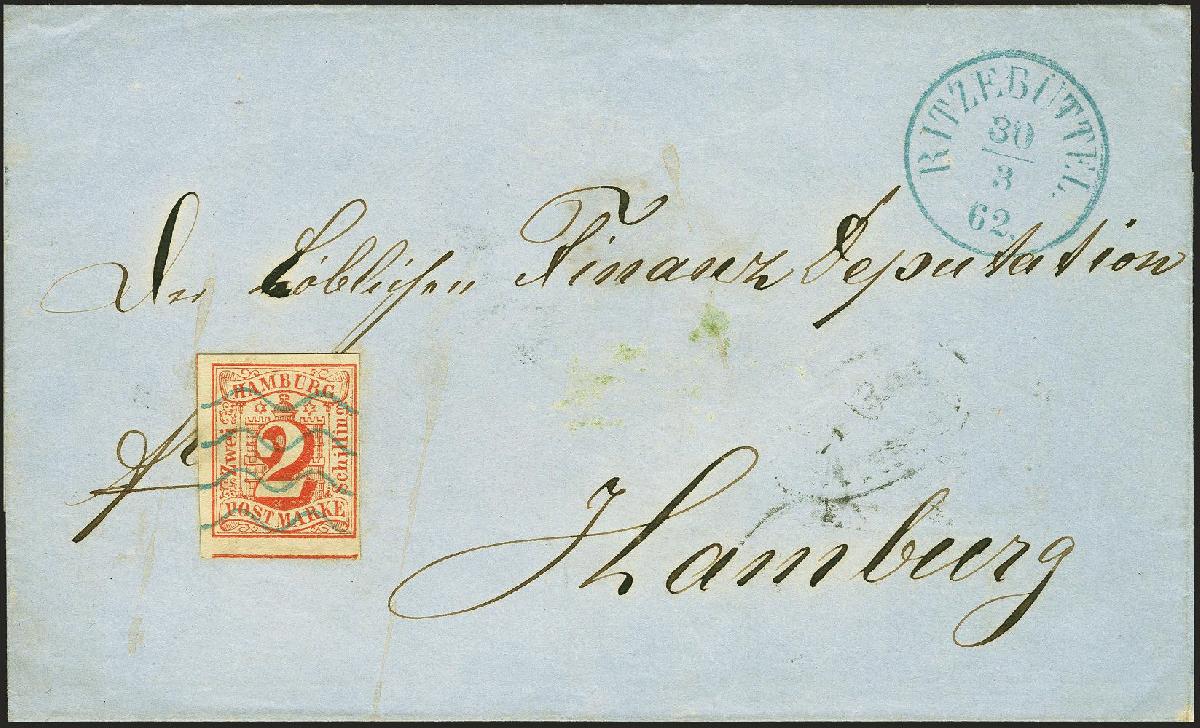 RITZEBÜTTEL
30
3
62.
Der Löblichen Finanz Deputation
HAMBURG
Zwei
2
Schilling
POSTMARKE
fr
Hamburg